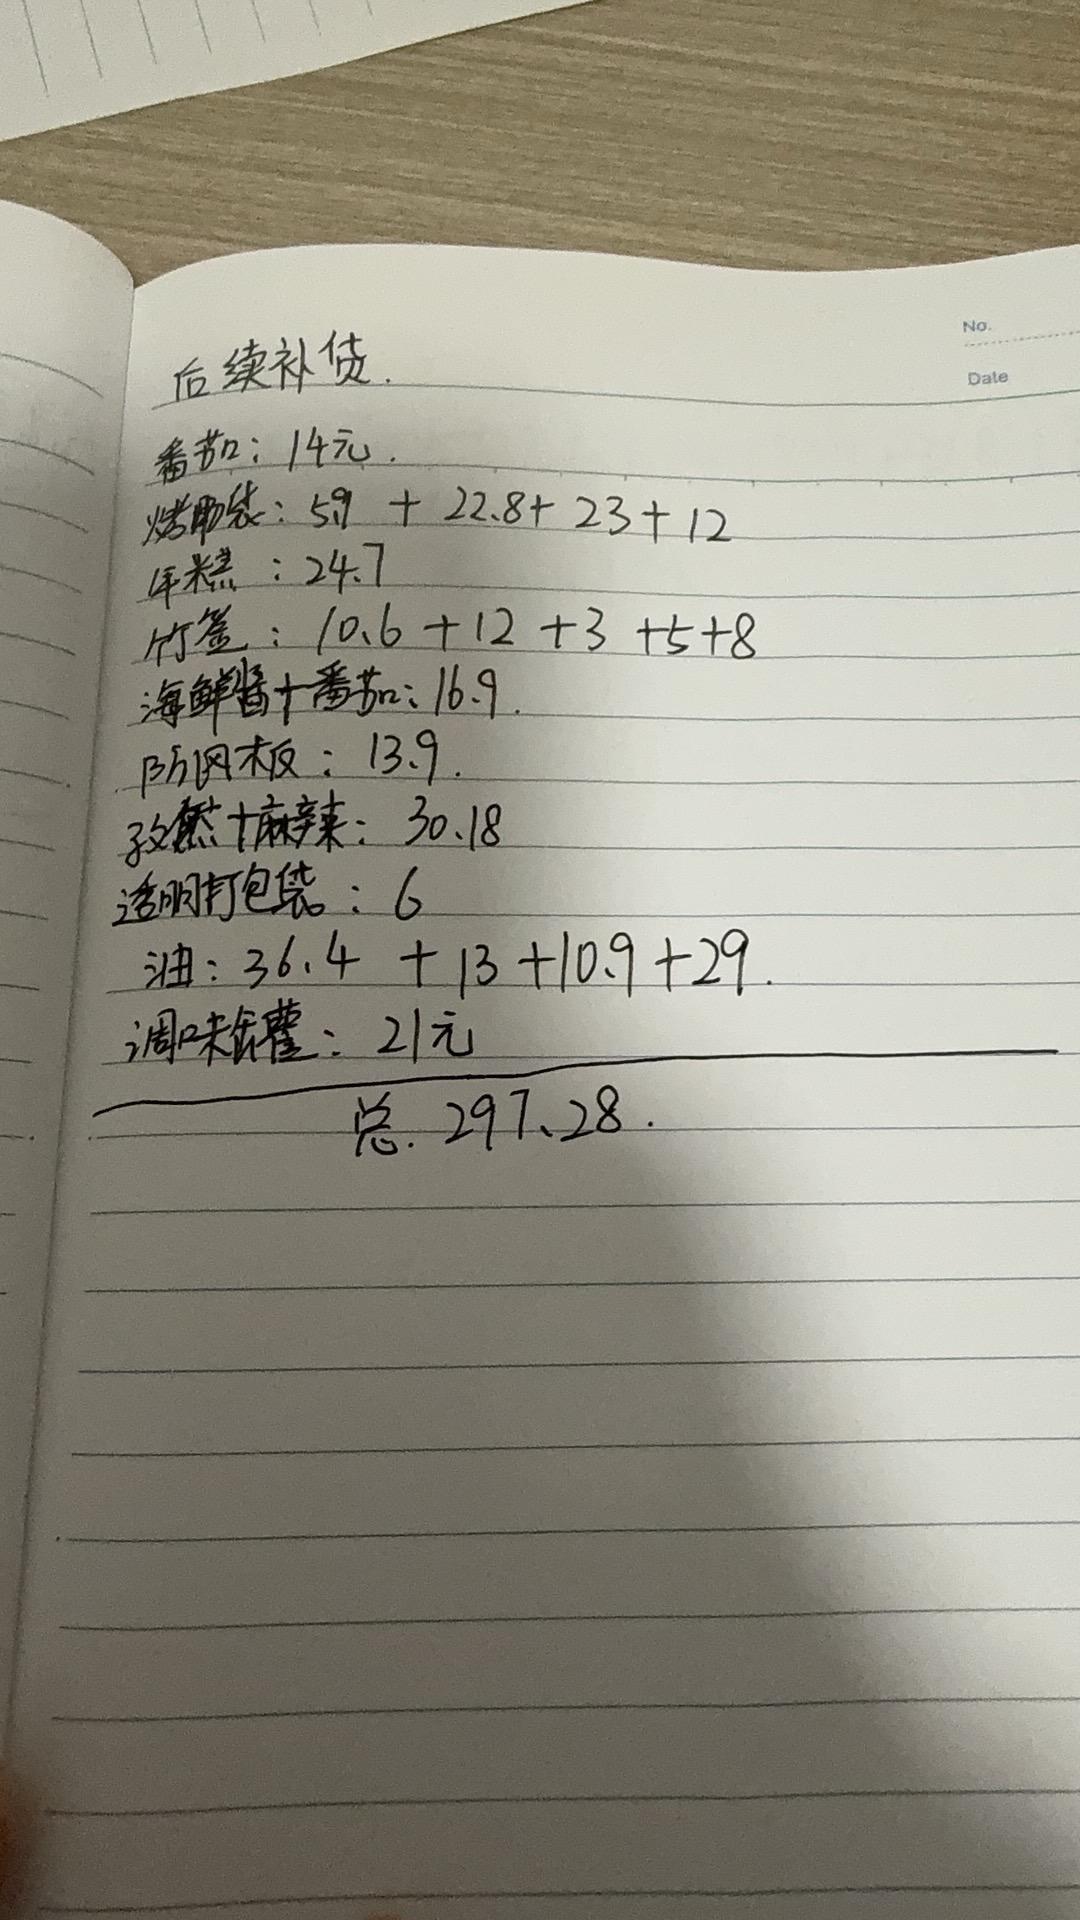 No.
Date
后续补货.
番茄: 14元.
烤肠袋: 5.9 + 22.8+ 23+12
年糕 : 24.7
竹签 : 10.6 +12 +3 +5+8
海鲜酱+番茄: 16.9.
防风板 : 13.9.
孜然+麻辣: 30.18
透明打包袋 : 6
油: 36.4 + 13 +10.9 +29.
调味罐: 21元
总. 297.28.